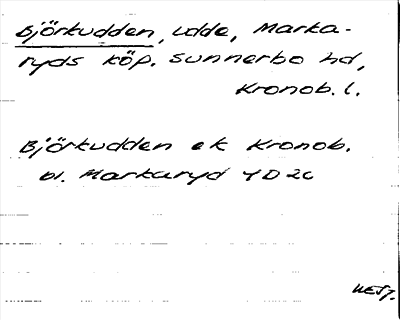 Björkudden, udde, Marka-
ryds köp. Sunnerbo hd,
Kronob. l.
Björkudden ek Kronob.
bl. Markaryd 4D 2c